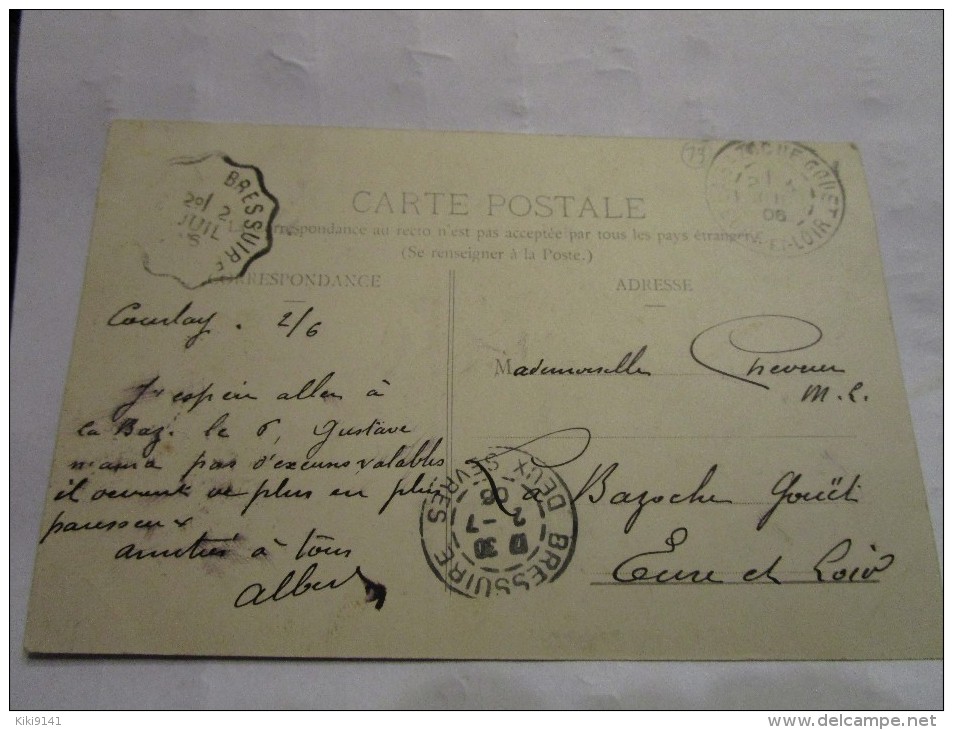 CARTE POSTALE
La Correspondance au recto n'est pas acceptée par tous les pays étrangers
(Se renseigner à la Poste.)
CORRESPONDANCE
Courlay. 2/6
J'espère aller à
la Baz. le 6, Gustave
n'aura pas d'excuses valables
il devient de plus en plus
paresseux
amitiés à tous
Albert
ADRESSE
Mademoiselle
M. L.
La Bazoche Gouët
Eure et Loir
BRESSUIRE
20/ 2
JUIL
BRESSUIRE
DEUX-SÈVRES
17 30
2 -7
06
BAZOCHE-GOUET
06
ET-LOIR
73
Kiki9141
www.delcampe.net